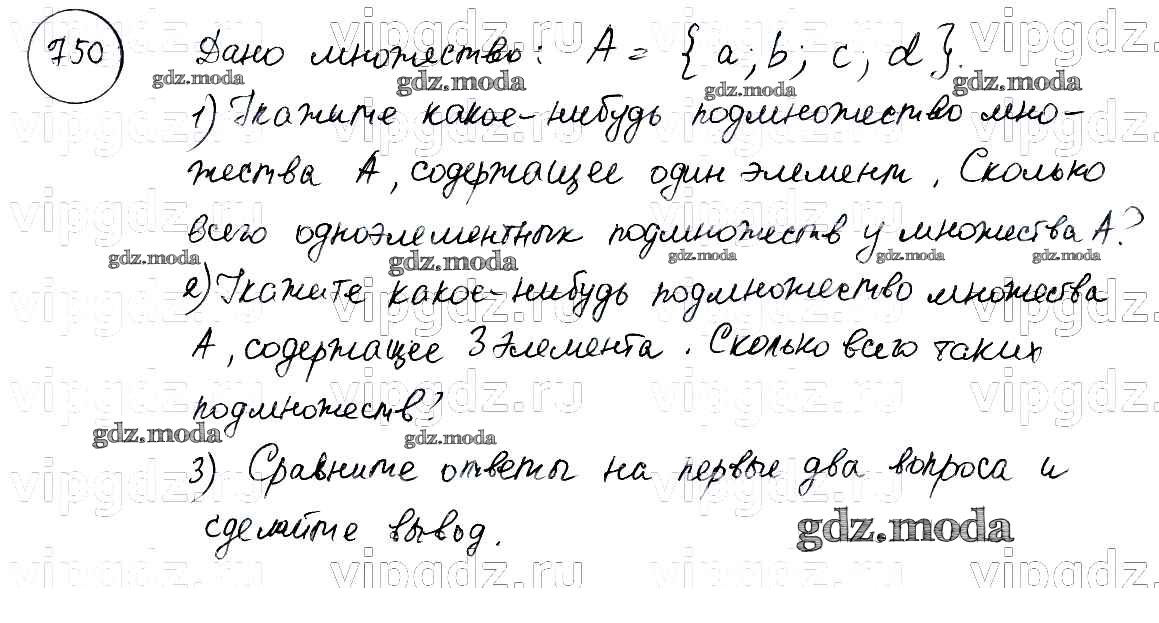 750 Дано множество: A = {a; b; c; d}.
1) Укажите какое-нибудь подмножество мно-
жества A, содержащее один элемент. Сколько
всего одноэлементных подмножеств у множества A?
2) Укажите какое-нибудь подмножество множества
A, содержащее 3 элемента. Сколько всего таких
подмножеств?
3) Сравните ответы на первые два вопроса и
сделайте вывод.
gdz.moda
vipgdz.ru